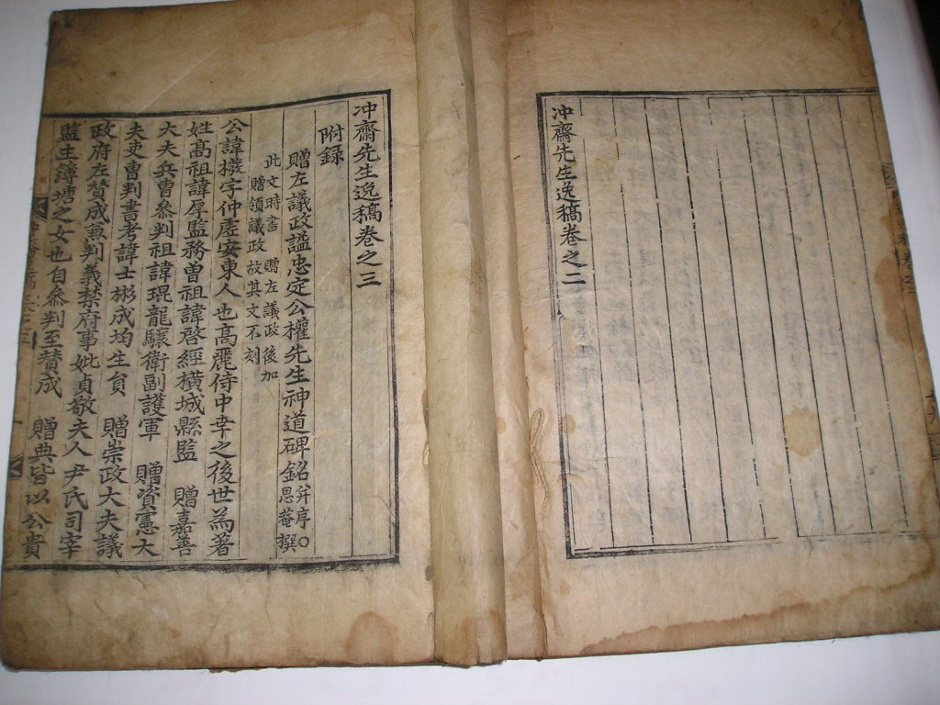 冲齋先生逸稿卷之二
冲齋先生逸稿卷之三
附録
贈左議政謚忠定公權先生神道碑銘并序○思菴撰
此文時書 贈左議政後加
贈領議政故其文不刻
公諱橃字仲虛安東人也高麗侍中幸之後世爲著
姓高祖諱厚監務曾祖諱啓經橫城縣監 贈嘉善
大夫兵曹叅判祖諱琨龍驤衛副護軍 贈資憲大
夫吏曹判書考諱士彬成均生員 贈崇政大夫議
政府左賛成兼判義禁府事妣貞敬夫人尹氏司宰
監主簿塘之女也自叅判至賛成 贈典皆以 公貴